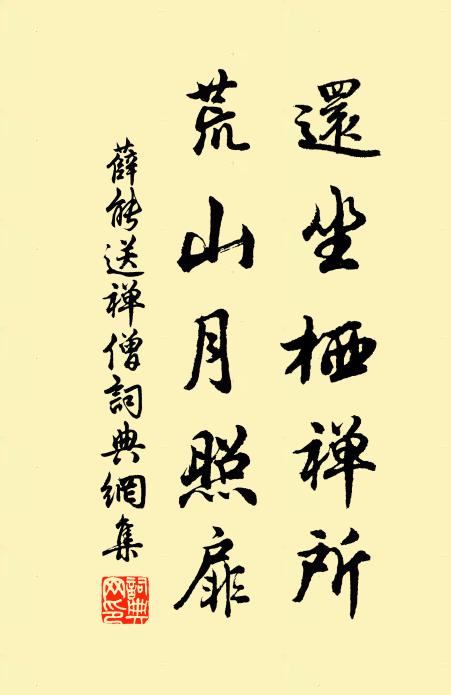 還坐栖禅所
荒山月照扉
薛能送禅僧詞典網集
詞典网印